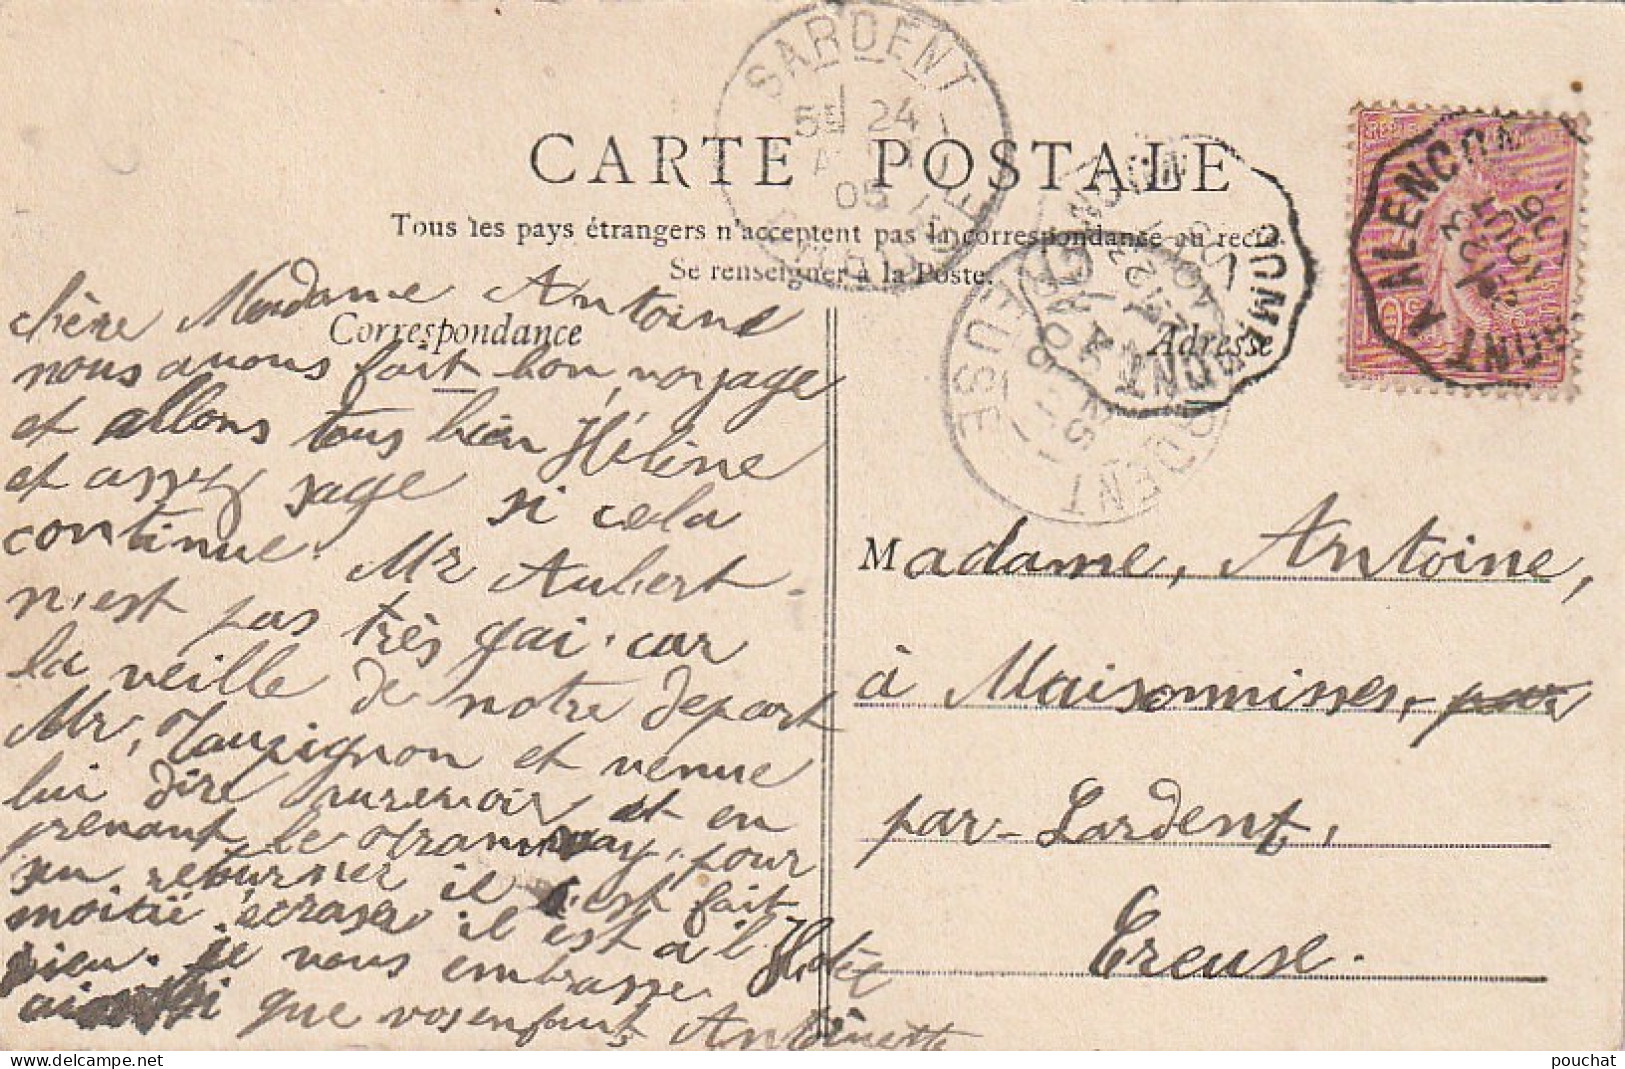 CARTE POSTALE
Tous les pays étrangers n'acceptent pas la correspondance au recto
Se renseigner à la Poste.
Correspondance
Adresse
SARDENT
24
05
CREUSE
ALENCON
DOMFRONT
chère Madame Antoine
nous avons fait bon voyage
et allons tous bien Hélène
et assez sage si cela
continue. Mr Aubert
n'est pas très gai. car
la veille de notre depart
Mr, et venue
lui dire aurevoir et en
prenant le tramway, pour
sen retourner il s'est fait
moitié écraser il est a l'Hotel
Dieu. je vous embrasse
ainsi que vos enfants Antoinette
Madame, Antoine,
à Maisonnisses, par
par Sardent,
Creuse.
pouchat